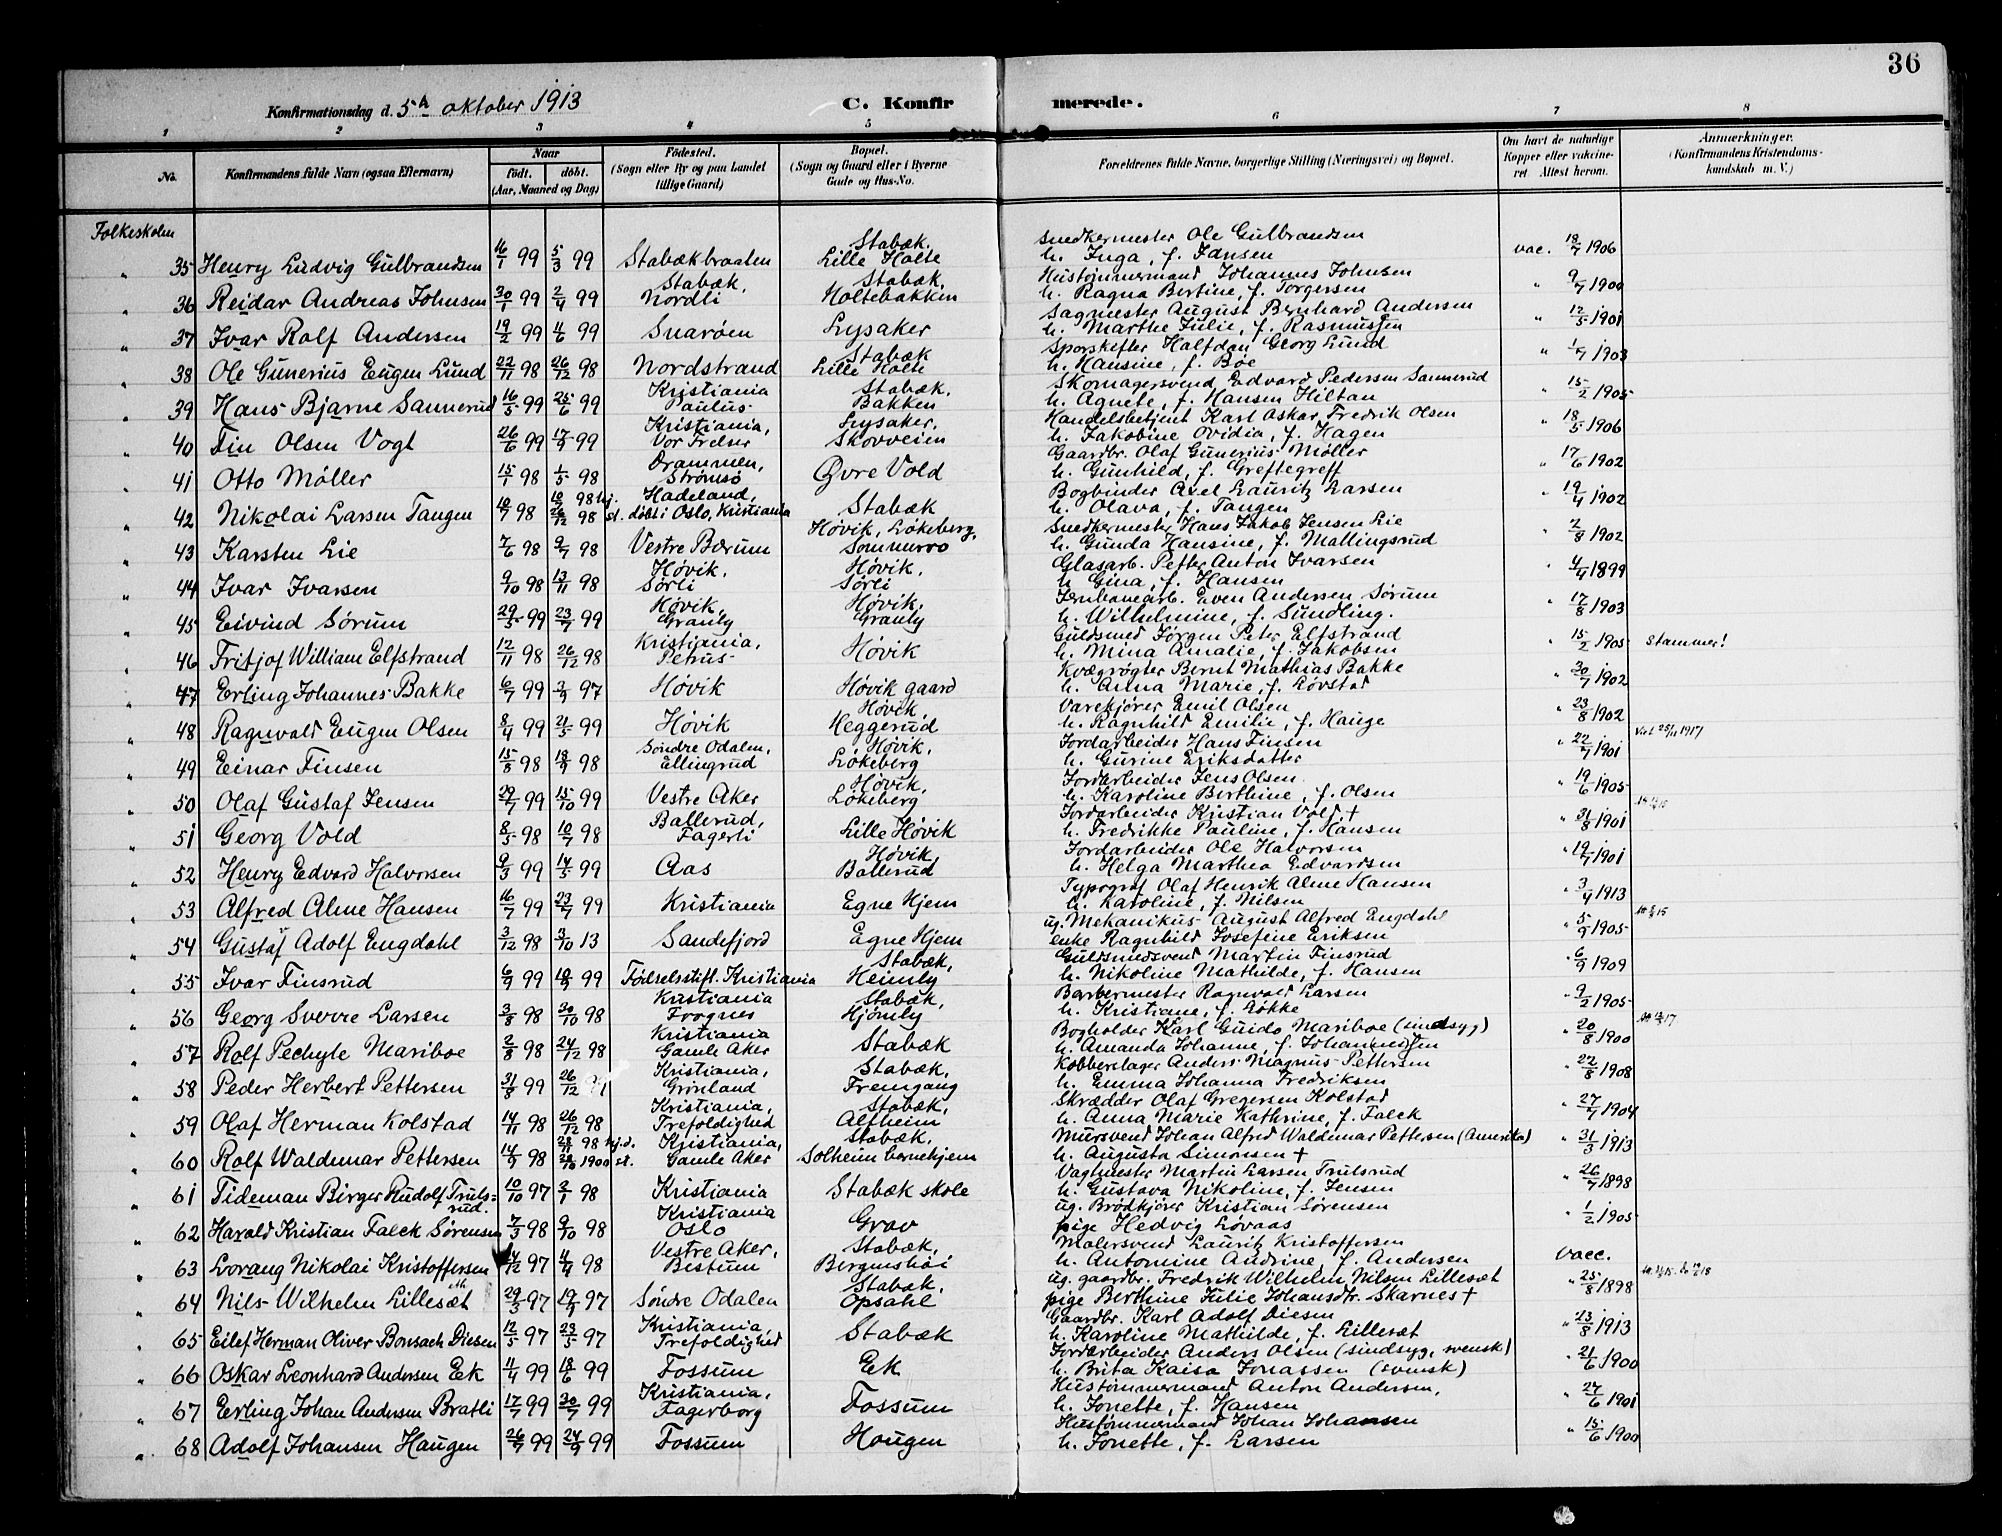 36
Konfirmationsdag d. 5te oktober 1913 C. Konfirmerede.
1 2 3 4 5 6 7 8
No. Konfirmandens fulde Navn (ogsaa Efternavn) Naar født. døbt. (Aar, Maaned og Dag) Fødested. (Sogn eller By og paa Landet tillige Gaard) Bopæl. (Sogn og Gaard eller i Byerne Gade og Hus-No. Forældrenes fulde Navne, borgerlige Stilling (Næringsvei) og Bopæl. Om havt de naturlige Kopper eller vakcineret Attest herom. Anmærkninger. (Konfirmandens Kristendomskundskab m. V.)
Folkeskolen
" 35 Henry Ludvig Gulbrandsen 16/1 99 5/3 99 Stabækbraaten Stabæk. Lille Holte Snedkermester Ole Gulbrandsen h. Inga, f. Jansen vac. 18/7 1906
" 36 Reidar Andreas Johnsen 30/1 99 2/4 99 Stabæk, Nordli Stabæk. Holtebakken Hustømmermand Johannes Johnsen h. Ragna Bertine, f. Torgersen " 9/7 1900
" 37 Ivar Rolf Andersen 19/2 99 4/6 99 Snarøen Lysaker Sagmester August Bernhard Andersen h. Marthe Julie, f. Rasmussen " 12/5 1901
" 38 Ole Gunerius Eugen Lund 22/11 98 26/12 98 Nordstrand Stabæk Lille Holte Sporskifter Halfdan Georg Lund h. Hansine, f. Bøe " 1/7 1903
" 39 Hans Bjarne Sannerud 16/5 99 25/6 99 Kristiania Paulus Stabæk. Bakken Skomagersvend Edvard Pedersen Sannerud h. Agnete, f. Hansen Hiltan " 15/2 1905
" 40 Fin Olsen Vogt 26/6 99 17/9 99 Kristiania, Vor Frelser Lysaker. Skovveien Handelsbetjent Karl Oskar Fredrik Olsen h. Jakobine Ovidia, f. Hagen " 18/5 1906
" 41 Otto Møller 15/1 98 1/5 98 Drammen, Strømsø Øvre Vold Gaardbr. Olaf Gunerius Møller h. Gunhild, f. Greftegreff " 17/6 1902
" 42 Nikolai Larsen Tangen 10/7 98 10/7 98 hj. 26/12 98 st. Hadeland, døbt i Oslo, Kristiania Stabæk Bogbinder Axel Lauritz Larsen h. Olava, f. Tangen " 19/4 1902
" 43 Karsten Lie 7/6 98 9/7 98 Vestre Bærum Høvik, Løkeberg, Sommerro Snedkermester Hans Jakob Jensen Lie h. Gunda Hansine, f. Mallingsrud " 2/8 1902
" 44 Ivar Ivarsen 9/10 98 13/11 98 Høvik, Sørli Høvik. Sørli Glasarb. Petter Anton Ivarsen h. Gina, f. Hansen " 4/4 1899
" 45 Eivind Sørum 29/5 99 23/7 99 Høvik, Granly Høvik. Granly Jernbanearb. Even Andersen Sørum h. Wilhelmine, f. Sundling. " 17/8 1903
" 46 Fritjof William Elfstrand 12/11 98 26/12 98 Kristiania, Petrus Høvik Guldsmed Jørgen Peter Elfstrand h. Mina Amalie, f. Jakobsen " 15/2 1905 Stammer!
" 47 Erling Johannes Bakke 6/7 99 3/9 97 Høvik Høvik gaard Kvægrøgter Bernt Mathias Bakke h. Anna Marie, f. Løvstad " 30/7 1902
" 48 Ragnvald Eugen Olsen 8/4 99 21/5 99 Høvik Høvik Heggerud Varekjører Emil Olsen h. Ragnhild Emilie, f. Hauge " 23/8 1902
" 49 Einar Finsen 15/8 98 18/9 98 Søndre Odalen, Ellingrud Høvik, Løkeberg Jordarbeider Hans Finsen h. Gurine Eriksdatter " 22/7 1901 1917
" 50 Olaf Gustaf Jensen 29/7 99 15/10 99 Vestre Aker Høvik, Løkeberg Jordarbeider Jens Olsen h. Karoline Berthine, f. Olsen " 19/6 1905
" 51 Georg Vold 8/5 98 10/7 98 Ballerud, Fagerli Lille Høvik Jordarbeider Kristian Vold + h. Fredrikke Pauline, f. Hansen " 31/8 1901
" 52 Henry Edvard Halvorsen 9/3 99 14/5 99 Aas Høvik Ballerud Jordarbeider Ole Halvorsen h. Helga Marthea Edvardsen " 19/7 1901
" 53 Alfred Alme Hansen 16/7 99 23/7 99 Kristiania Egne Hjem Typograf Olaf Henrik Alme Hansen h. Karoline, f. Nilsen " 3/4 1913
" 54 Gustaf Adolf Engdahl 3/12 98 3/10 13 Sandefjord Egne Hjem ug. Mekanikus August Alfred Engdahl enke Ragnhild Josefine Eriksen " 5/9 1905
" 55 Ivar Finsrud 6/9 99 10/9 99 Fødselsstift. Kristiania Stabæk, Heimly Guldsmedsvend Martin Finsrud h. Nikoline Mathilde, f. Hansen " 6/9 1909
" 56 Georg Sverre Larsen 3/8 98 30/10 98 Kristiania Frogner Stabæk, Hjemly Barbermester Ragnvald Larsen h. Kristiane, f. Løkke " 9/2 1905
" 57 Rolf Pechyle Mariboe 2/8 98 24/12 98 Kristiania Gamle Aker Stabæk Bogholder Karl Guido Mariboe (sindsyg) h. Amanda Johanne, f. Johannessen " 20/8 1900
" 58 Peder Herbert Pettersen 31/8 99 26/12 Kristiania, Grønland Stabæk. Fremgang Kobberslager Anders Magnus Pettersen h. Emma Johanna Fredriksen " 22/8 1908
" 59 Olaf Herman Kolstad 14/11 98 26/12 98 Kristiania, Trefoldighed Stabæk. Alfheim Skrædder Olaf Gregersen Kolstad h. Anna Marie Kathrine, f. Falck " 27/7 1904
" 60 Rolf Waldemar Pettersen 14/9 98 98 hj.d. 1900 st. Kristiania, Gamle Aker Stabæk. Solheim barnehjem Mursvend Johan Alfred Waldemar Pettersen (Amerika) h. Augusta Simonsen + " 31/3 1913
" 61 Tideman Birger Rudolf Trulsrud. 10/10 97 2/1 98 Kristiania Stabæk skole Vagtmester Martin Larsen Trulsrud h. Gustava Nikoline, f. Jensen " 26/7 1898
" 62 Harald Kristian Falck Sørensen 7/3 98 9/10 98 Kristiania Oslo Grav ug. Brødkjører Kristian Sørensen pige Hedvig Løvaas " 1/2 1905
" 63 Lorang Nikolai Kristoffersen 14/12 97 4/4 98 Vestre Aker, Bestum Stabæk. Bergenshøi Malersvend Lauritz Kristoffersen h. Antomine Andrine, f. Andersen vacc.
" 64 Nils Wilhelm Lillesæt 29/3 97 19/7 97 Søndre Odalen Stabæk. Opsahl ug. gaardbr. Fredrik Wilhelm Nilsen Lillesæt pige Berthine Julie Johansdtr. Skarnes + " 25/8 1898
" 65 Eilef Herman Oliver Bonsach Diesen 12/5 97 23/5 97 Kristiania Trefoldighed Stabæk Gaardbr. Karl Adolf Diesen h. Karoline Mathilde, f. Lillesæt " 23/8 1913
" 66 Oskar Leonhard Andersen Ek 11/4 99 18/6 99 Fossum Ek Jordarbeider Anders Olsen (sindsyg, svensk) h. Brita Kaisa Jonassen (svensk) " 21/6 1900
" 67 Erling Johan Andersen Bratli 17/7 99 30/7 99 Kristiania, Fagerborg Fossum Hustømmermand Anton Andersen, h. Jonette, f. Hansen " 27/6 1901
" 68 Adolf Johansen Haugen 26/7 99 24/9 99 Fossum Hougen Hustømmermand Johan Johansen h. Jonette, f. Larsen " 15/6 1900